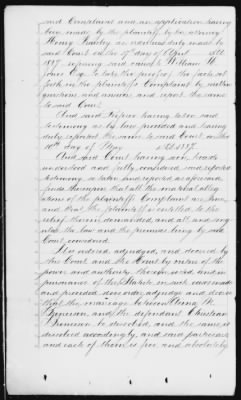 said Complaint and an application having
been made by the plaintiff, by her attorney
Henry to an order duly made by
said Court on the 17" day of April A.D.
1897, referring said cause to William W.
Jones Esq. to take the proof of the facts set
forth in the plaintiff's Complaint by interro-
gatories and answers and report the same
to said Court.
And said Referee having taken said
testimony as by law provided and having
duly reported the same to said Court on the
10th day of May A.D. 1897.
And said Court having seen, heard
understood and fully considered said reported
testimony so taken and reported as aforesaid
finds thereupon that all the material alleg-
ations of the plaintiff's Complaint are true,
and that the plaintiff is entitled to the
relief therein demanded, and all and sing-
ular the law and the premises being by said
Court considered.
It is ordered, adjudged, and decreed by
this Court and the Court by virtue of the
power and authority therein vested and in
pursuance of the Statute in such case made
and provided does order, adjudge and decree
that the marriage between Anna M.
and the defendant Christian
be dissolved, and the same is
dissolved accordingly, and said parties are
and each of them is free and absolutely